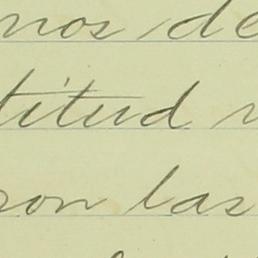 nos de
titud
son las